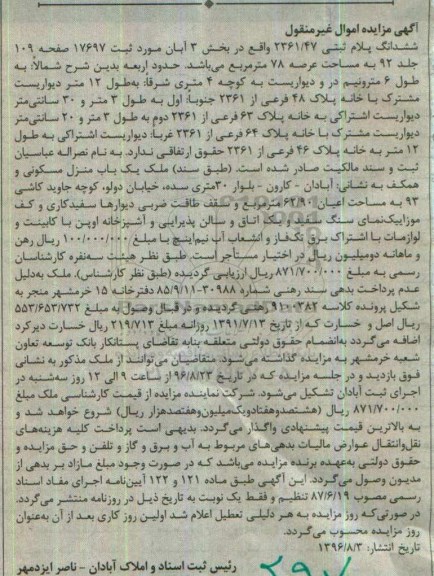 آگهی مزایده اموال غیرمنقول
ششدانگ پلام نبشی ۲۳۶۱/۴۷ واقع در بخش ۳ آبان مورد ثبت ۱۷۶۹۷ صفحه ۱۰۹
جلد ۹۲ به مساحت عرصه ۷۸ مترمربع می‌باشد. حدود اربعه بدین شرح شمالاً: به
طول ۶ مترونیم در و دیواریست به کوچه ۴ متری شرقاً: به‌طول ۱۲ متر دیواریست
مشترک با خانه پلاک ۴۸ فرعی از ۲۳۶۱ جنوباً: اول به طول ۳ متر و ۳۰ سانتی‌متر
دیواریست اشتراکی به خانه پلاک ۶۳ فرعی از ۲۳۶۱ دوم به طول ۳ متر و ۲۰ سانتی‌متر
دیواریست مشترک با خانه پلاک ۶۴ فرعی از ۲۳۶۱ غرباً: دیواریست اشتراکی به طول
۱۲ متر به خانه پلاک ۴۶ فرعی از ۲۳۶۱ حقوق ارتفاقی ندارد. به نام نصراله عباسیان
ثبت و سند مالکیت صادر شده است. (طبق سند) ملک یک باب منزل مسکونی و
همکف به نشانی: آبادان - کارون - بلوار ۳۰متری سده، خیابان دولو، کوچه جاوید کاشی
۹۳ به مساحت اعیان ۶۲/۹۰ مترمربع و سقف طاقت ضربی دیوارها سفیدکاری و کف
موزاییک‌نمای سنگ سفید و یک اتاق و سالن پذیرایی و آشپزخانه اوپن با کابینت و
لوازمات با اشتراک برق تکفاز و انشعاب آب نیم‌اینچ با مبلغ ۱۰۰/۰۰۰/۰۰۰ ریال رهن
و ماهانه دومیلیون ریال در اختیار مستأجر است. طبق نظر هیئت سه‌نفره کارشناسان
رسمی به مبلغ ۸۷۱/۷۰۰/۰۰۰ ریال ارزیابی گردیده (طبق نظر کارشناس). ملک به‌دلیل
عدم پرداخت بدهی سند رهنی شماره ۳۰۹۸۸-۸۵/۹/۱۱ دفترخانه ۱۵ خرمشهر منجر به
شکیل پرونده کلاسه ۹۱۰۰۳۸۲ رهنی گردیده و در قبال وصول به مبلغ ۵۵۳/۶۵۳/۷۳۲
ریال اصل و خسارت که از تاریخ ۱۳۹۱/۷/۱۳ روزانه مبلغ ۲۱۹/۷۱۳ ریال خسارت دیرکرد
اضافه می‌گردد به‌انضمام حقوق دولتی متعلقه بنابه تقاضای بستانکار بانک توسعه تعاون
شعبه خرمشهر به مزایده گذاشته می‌شود. متقاضیان می‌توانند از ملک مذکور به نشانی
فوق بازدید و در جلسه مزایده که در تاریخ ۹۶/۸/۲۳ از ساعت ۹ الی ۱۲ روز سه‌شنبه در
اجرای ثبت آبادان تشکیل می‌شود. شرکت نماینده مزایده از قیمت کارشناسی ملک مبلغ
۸۷۱/۷۰۰/۰۰۰ ریال (هشتصدوهفتادویک‌میلیون‌وهفتصدهزار ریال) شروع خواهد شد و
به بالاترین قیمت پیشنهادی واگذار می‌گردد. بدیهی است پرداخت کلیه هزینه‌های
نقل‌وانتقال عوارض مالیات بدهی‌های مربوط به آب و برق و گاز و تلفن و حق مزایده و
حقوق دولتی به‌عهده برنده مزایده می‌باشد که در صورت وجود مبلغ مازاد بر بدهی از
مدیون وصول می‌گردد. این آگهی طبق ماده ۱۲۱ و ۱۲۲ آیین‌نامه اجرای مفاد اسناد
رسمی مصوب ۸۷/۶/۱۹ تنظیم و فقط یک نوبت به تاریخ ذیل در روزنامه منتشر می‌گردد.
در صورتی‌که روز مزایده به هر دلیلی تعطیل اعلام شد اولین روز کاری بعد از آن به‌عنوان
روز مزایده محسوب می‌گردد.
تاریخ انتشار: ۱۳۹۶/۸/۳
رئیس ثبت اسناد و املاک آبادان - ناصر ایزدمهر